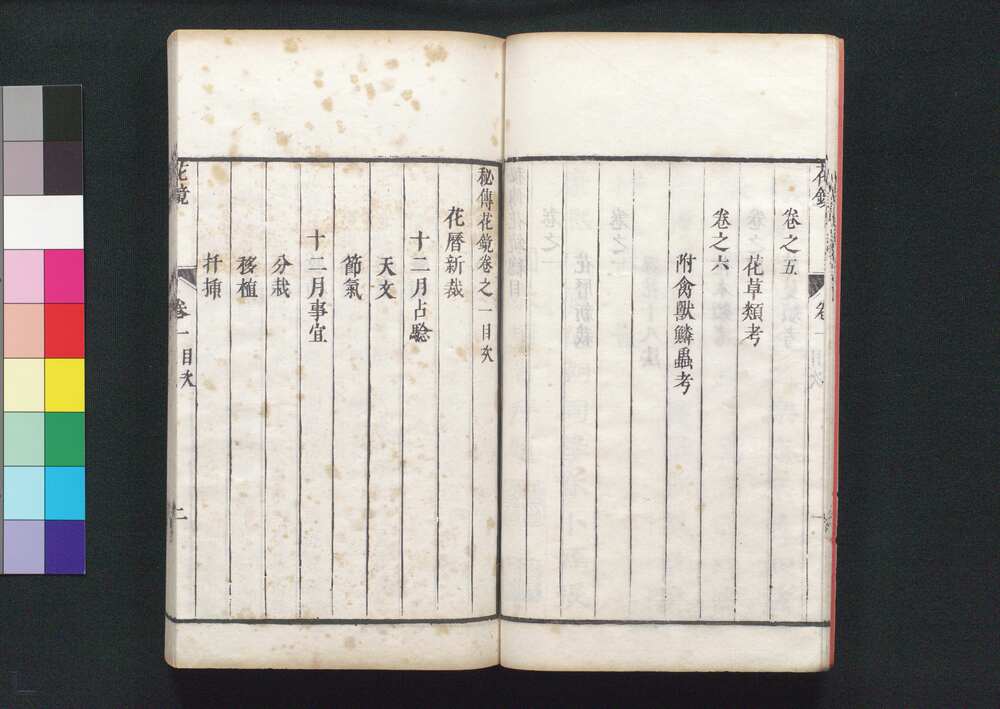 卷之五
花草類考
卷之六
附禽獸鱗蟲考
秘傳花鏡卷之一目次
花曆新裁
十二月占驗
天文
節氣
十二月事宜
分栽
移植
扦插
花鏡
卷一目次
二